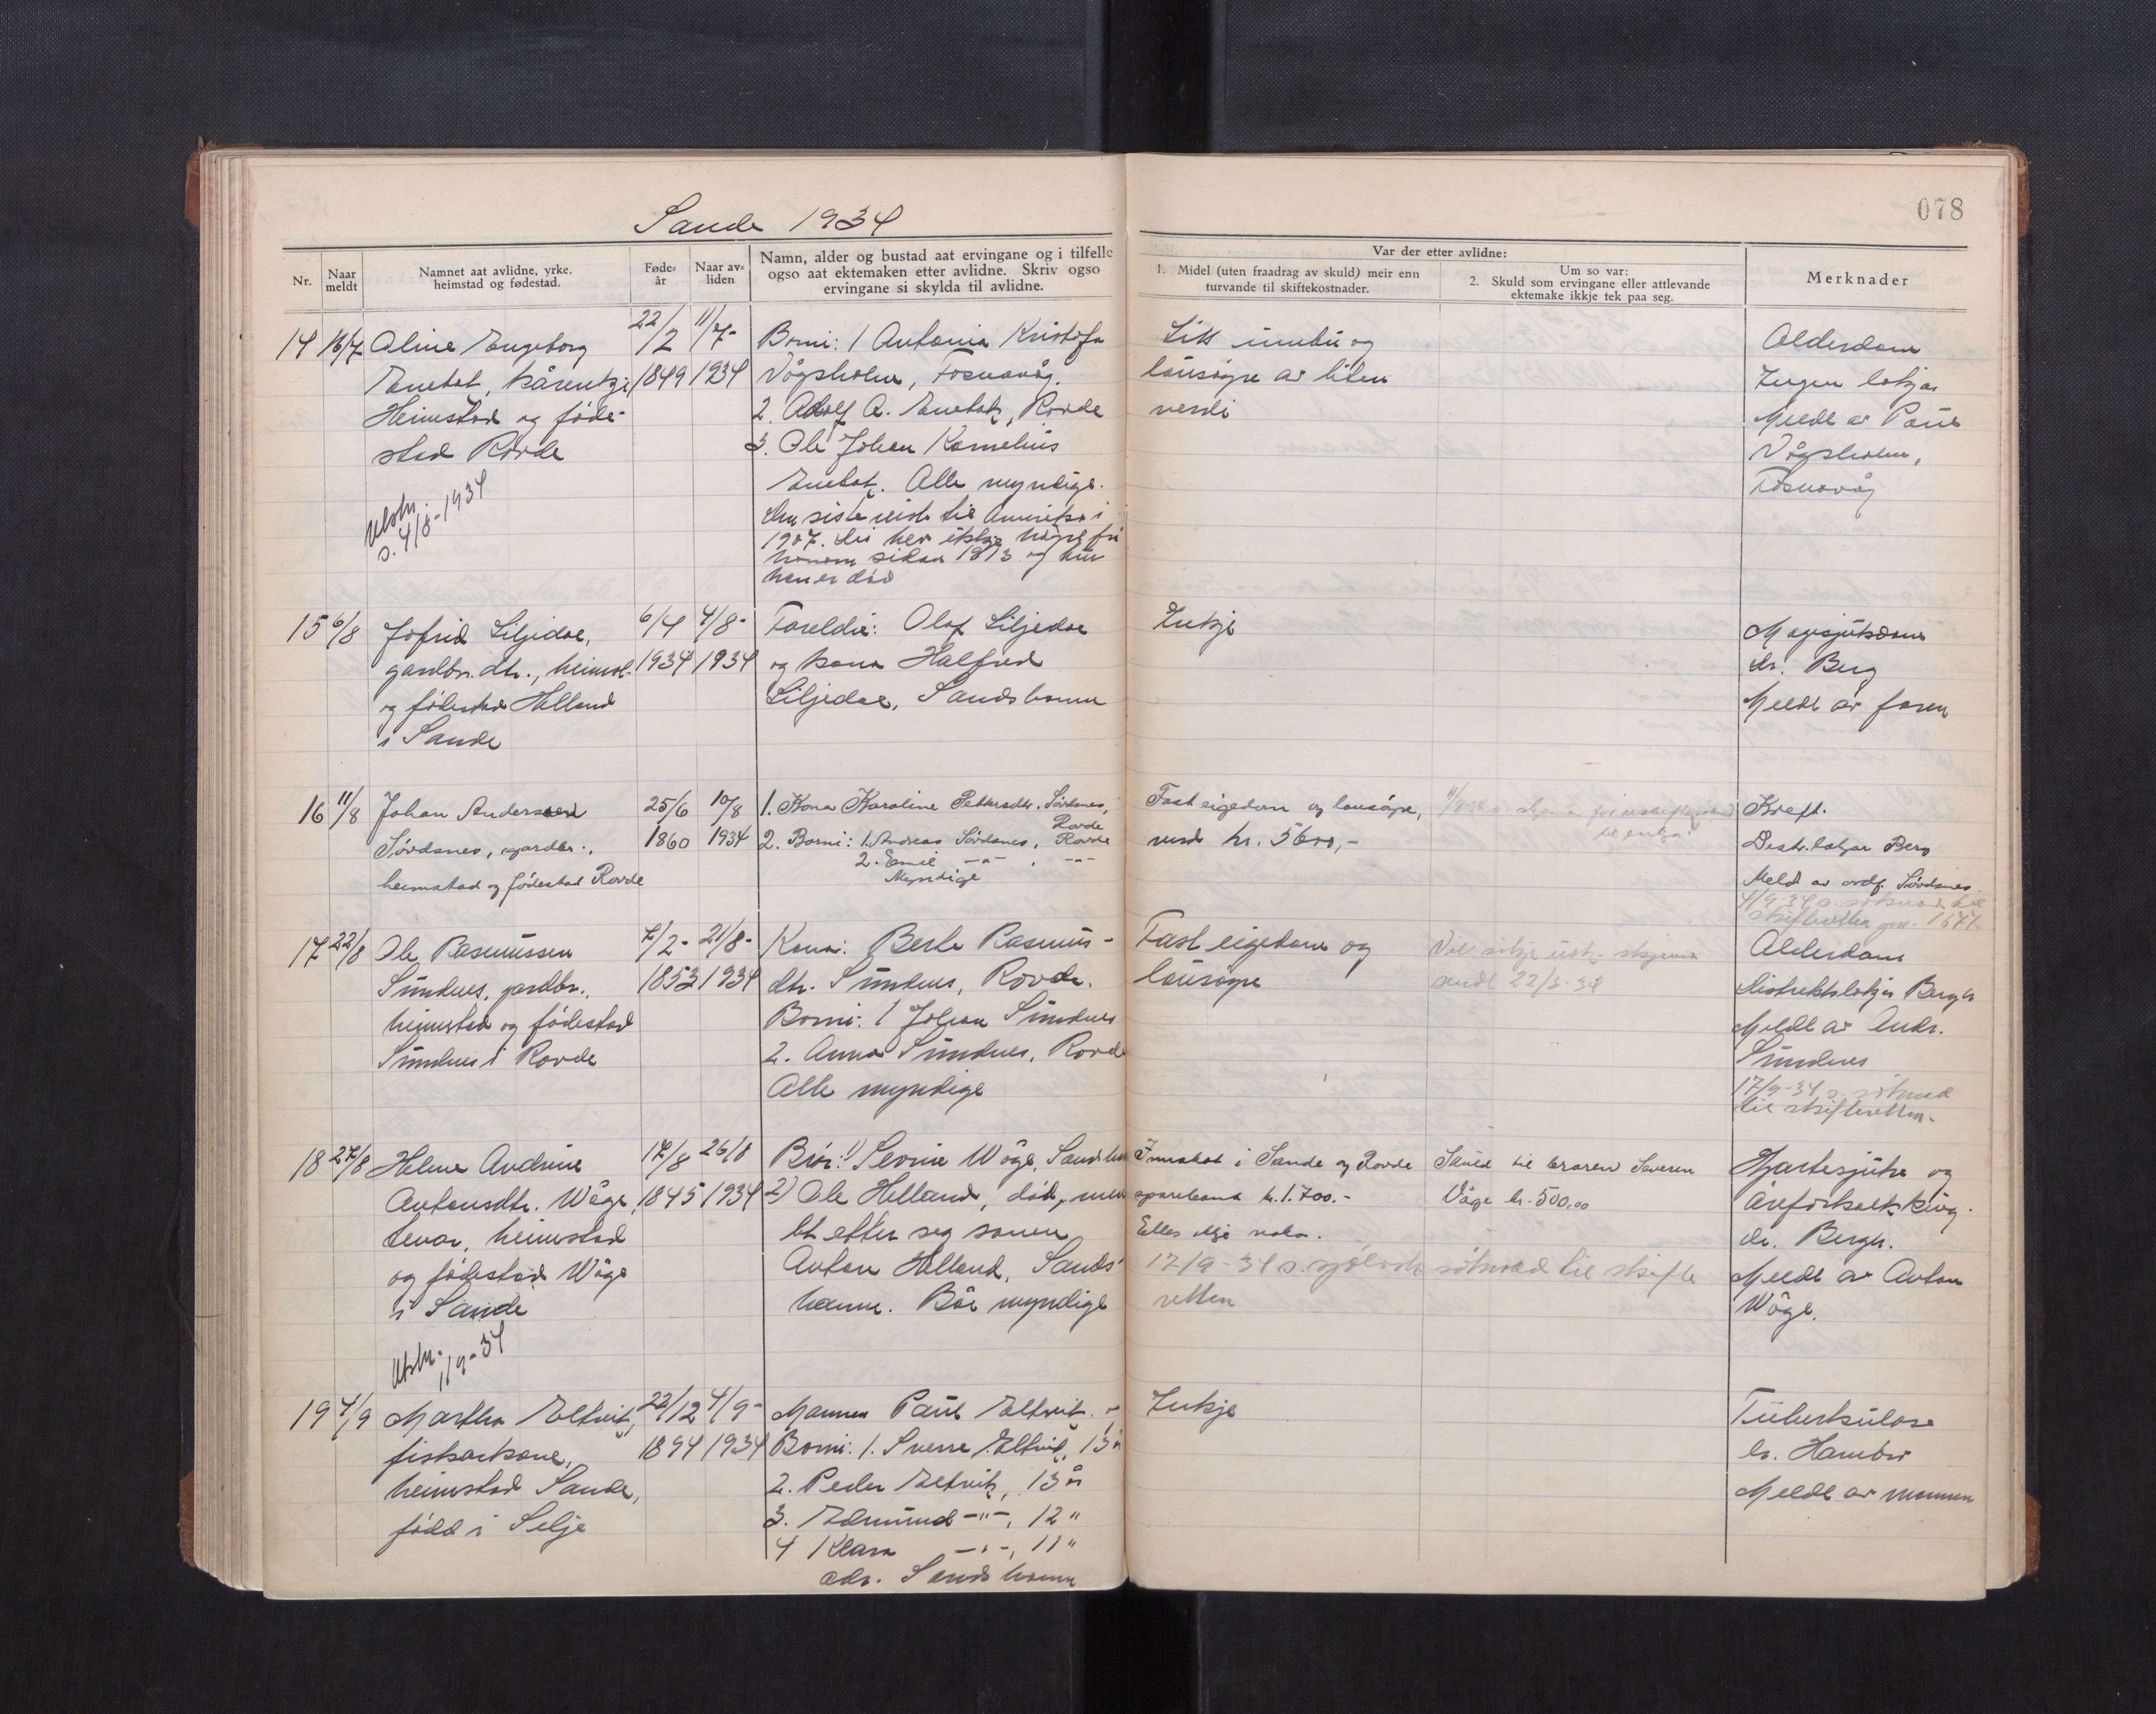 078
Sande 1934
Nr.
Naar meldt
Namnet aat avlidne, yrke.
heimstad og fødestad.
Føde-
år
Naar av-
liden
Namn, alder og bustad aat ervingane og i tilfelle
ogso aat ektemaken etter avlidne. Skriv ogso
ervingane si skylda til avlidne.
Var der etter avlidne:
1. Midel (uten fraadrag av skuld) meir enn
turvande til skiftekostnader.
Um so var:
2. Skuld som ervingane eller attlevande
ektemake ikkje tek paa seg.
Merknader
14 16/7 Oline Engeborg
Enebot, kårenkje
Heimstad og føde-
stad Rovde
4/8-1934
22/2
1849
11/7-
1934
Borni: 1 Antonia Kristofa
Vågsholm, Fosnavåg.
2. Adolf A. Enebot, Rovde
3. Ole Johan Kornelius
Enebot. Alle myndige.
Den siste reiste til Amerika i
1907. Dei her ikkje høyrt frå
honom sidan 1913 og
han er død
Litt innbu og
lausøyre av liten
verdi
Alderdom
Ingen lækjar
Meldt av Paul
Vågsholm,
Fosnavåg
15 6/8 Jofrid Liljedal,
gardbr. dtr., heimst.
og fødestad Helland
i Sande
6/4
1934
4/8-
1934
Foreldre: Olaf Liljedal
og kona Halfrid
Liljedal, Sandshamn
Inkje
Magesjukdom
dr. Berg
Meldt av faren
16 11/8 Johan Andersen
Sørdsnes, gardbr.,
heimstad og fødestad Rovde
25/6
1860
10/8
1934
1. Kona Karoline Pettersdtr. Sørdsnes,
Rovde
2. Borni: 1. Andreas Sørdsnes, Rovde
2. Emil -"- , -"-
Myndige
Fast eigedom og lausøyre,
verd kr. 5600,-
Kreft.
Distr.lækjar Berg
Meld av ordf. Sørdsnes.
4/9-34 s. søknad til
skifteretten
17 22/8 Ole Rasmussen
Sundnes, gardbr.,
heimstad og fødestad
Sundnes i Rovde
7/2-
1853
21/8-
1934
Kona: Berte Rasmus-
dtr. Sundnes, Rovde.
Borni: 1 Johan Sundnes
2. Anna Sundnes, Rovde
Alle myndige
Fast eigedom og
lausøyre
Vil søkje skjema
sendt 22/8-34
Alderdom
Distriktslækjar Bergh
Meldt av Andr.
Sundnes
17/9-34 s. søknad
til skifteretten.
18 27/8 Helene Andrine
Antonsdtr. Wåge,
heimstad
og fødestad Wåge
i Sande
11/9-34
17/8
1845
26/8
1934
Brør: 1) Severin Wåge, Sandshamn
2) Ole Helland, død, men
let etter seg sonen
Anton Helland, Sands-
hamn. Båe myndige
Innskot i Sande og Rovde
sparebank kr. 1.700.-
Elles ikkje noko.
17/9-34 s. søknad til skifte
retten
Skuld til broren Severin
Våge kr. 500,00
Hjartesjuke og
åreforkalkking.
dr. Bergh.
Meldt av Anton
Wåge.
19 4/9 Martha Eltvik,
fiskarkone,
heimstad Sande,
fødd i Selje
22/12
1894
4/9-
1934
Mannen Paul Eltvik. og
Borni: 1. Sverre Eltvik, 15 år
2. Peder Eltvik, 13 år
3. Edmund -"-, 12 "
4 Klara -"-, 11 "
adr. Sandshamn
Inkje
Tuberkulose
dr. Hambro
Meldt av mannen